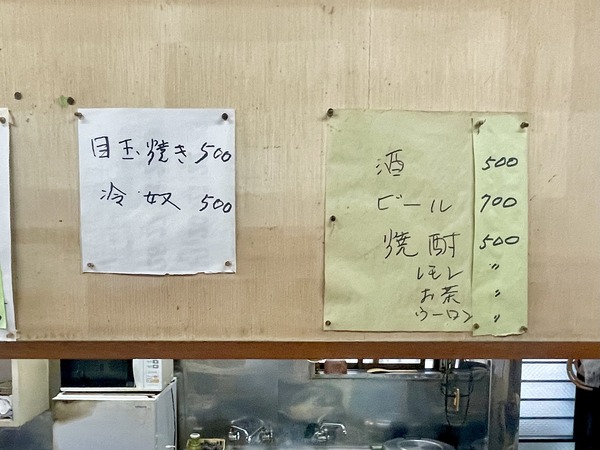 目玉焼き 500
冷奴 500
酒 500
ビール 700
焼酎 500
レモン 〃
お茶 〃
ウーロン 〃